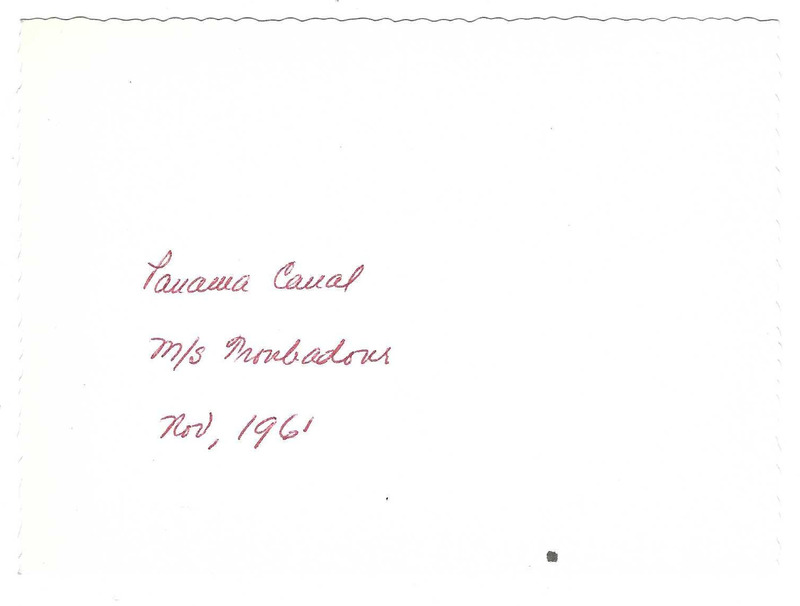 Panama Canal
M/S Troubadour
Nov, 1961